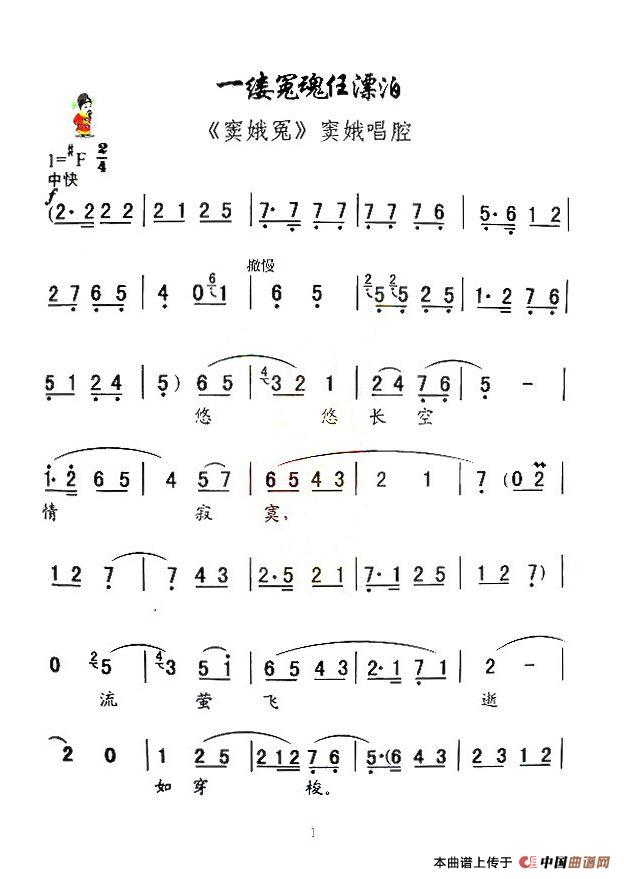 一缕冤魂任漂泊
《窦娥冤》窦娥唱腔
1=#F 2/4
中快
f
(2·2 2 2 | 2 1 2 5 | 7·7 7 7 | 7 7 7 6 | 5·6 1 2 |
撤慢
2 7 6 5 | 4 0 6 1 | 6 5 | 2 5 2 5 2 5 | 1·2 7 6 |
5 1 2 4 | 5) 6 5 | 4 3 2 1 | 2 4 7 6 | 5 － |
悠 悠 长 空
1·2 6 5 | 4 5 7 | 6 5 4 3 | 2 1 | 7 (0 2 |
情 寂 寞，
1 2 7 | 7 4 3 | 2·5 2 1 | 7·1 2 5 | 1 2 7) |
0 2 5 | 4 3 5 1 | 6 5 4 3 | 2·1 7 1 | 2 － |
流 萤 飞 逝
2 0 | 1 2 5 | 2 1 2 7 6 | 5·(6 4 3 | 2 3 1 2 |
如 穿 梭。
1
本曲谱上传于 中国曲谱网